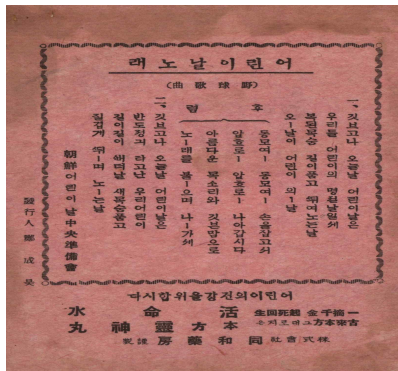 어린이날노래
(野球歌曲)
一、깃브고나 오늘날 어린이날은
우리들 어린이의 명절날일세
복된목숨 길이품고 뛰여노는날
오ー날이 어린이의ー날
후렴
동모여ー 동모여ー 손을잡고쉬
앞호로ー 앞호로ー 나아갑시다
아름다운 목소리와 깃븐맘으로
노ー래를 불으며 나ー가세
一、깃브고나 오늘날 어린이날은
반도정긔 타고난 우리어린이
길이길이 새목숨품고
질겁게 뛰며 노ー는날
朝鮮어린이날中央準備會
發行人 鄭成昊
어린이의건강을위합시다
一滴千金 起死回生 活命水
古來本方그대로지은 本方 靈神丸
株式會社 同和藥房 謹製